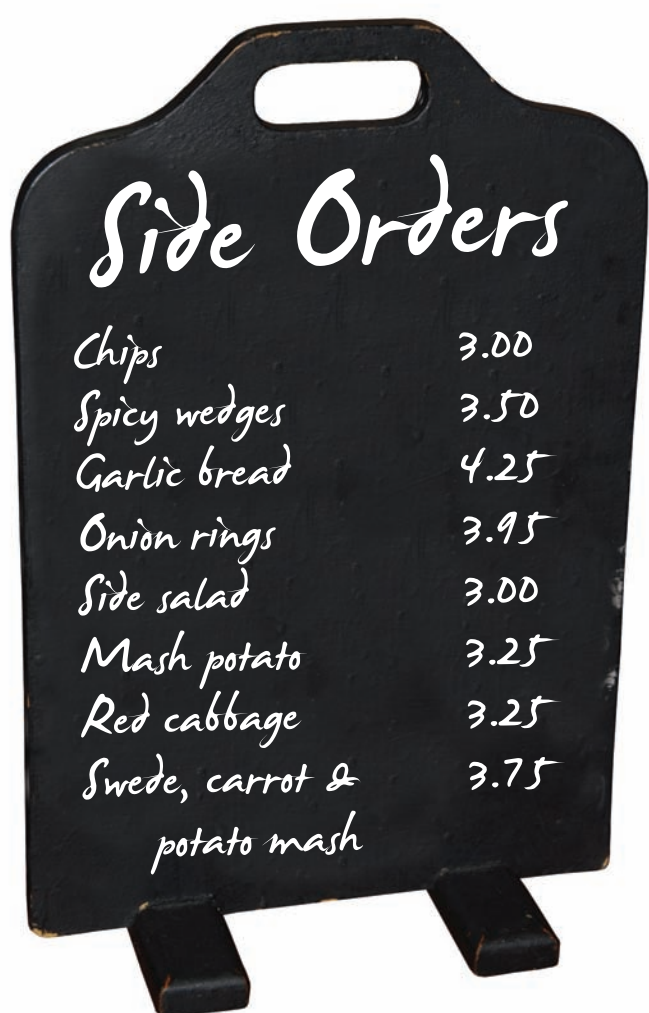 Side Orders
Chips 3.00
Spicy wedges 3.50
Garlic bread 4.25
Onion rings 3.95
Side salad 3.00
Mash potato 3.25
Red cabbage 3.25
Swede, carrot & 3.75
potato mash